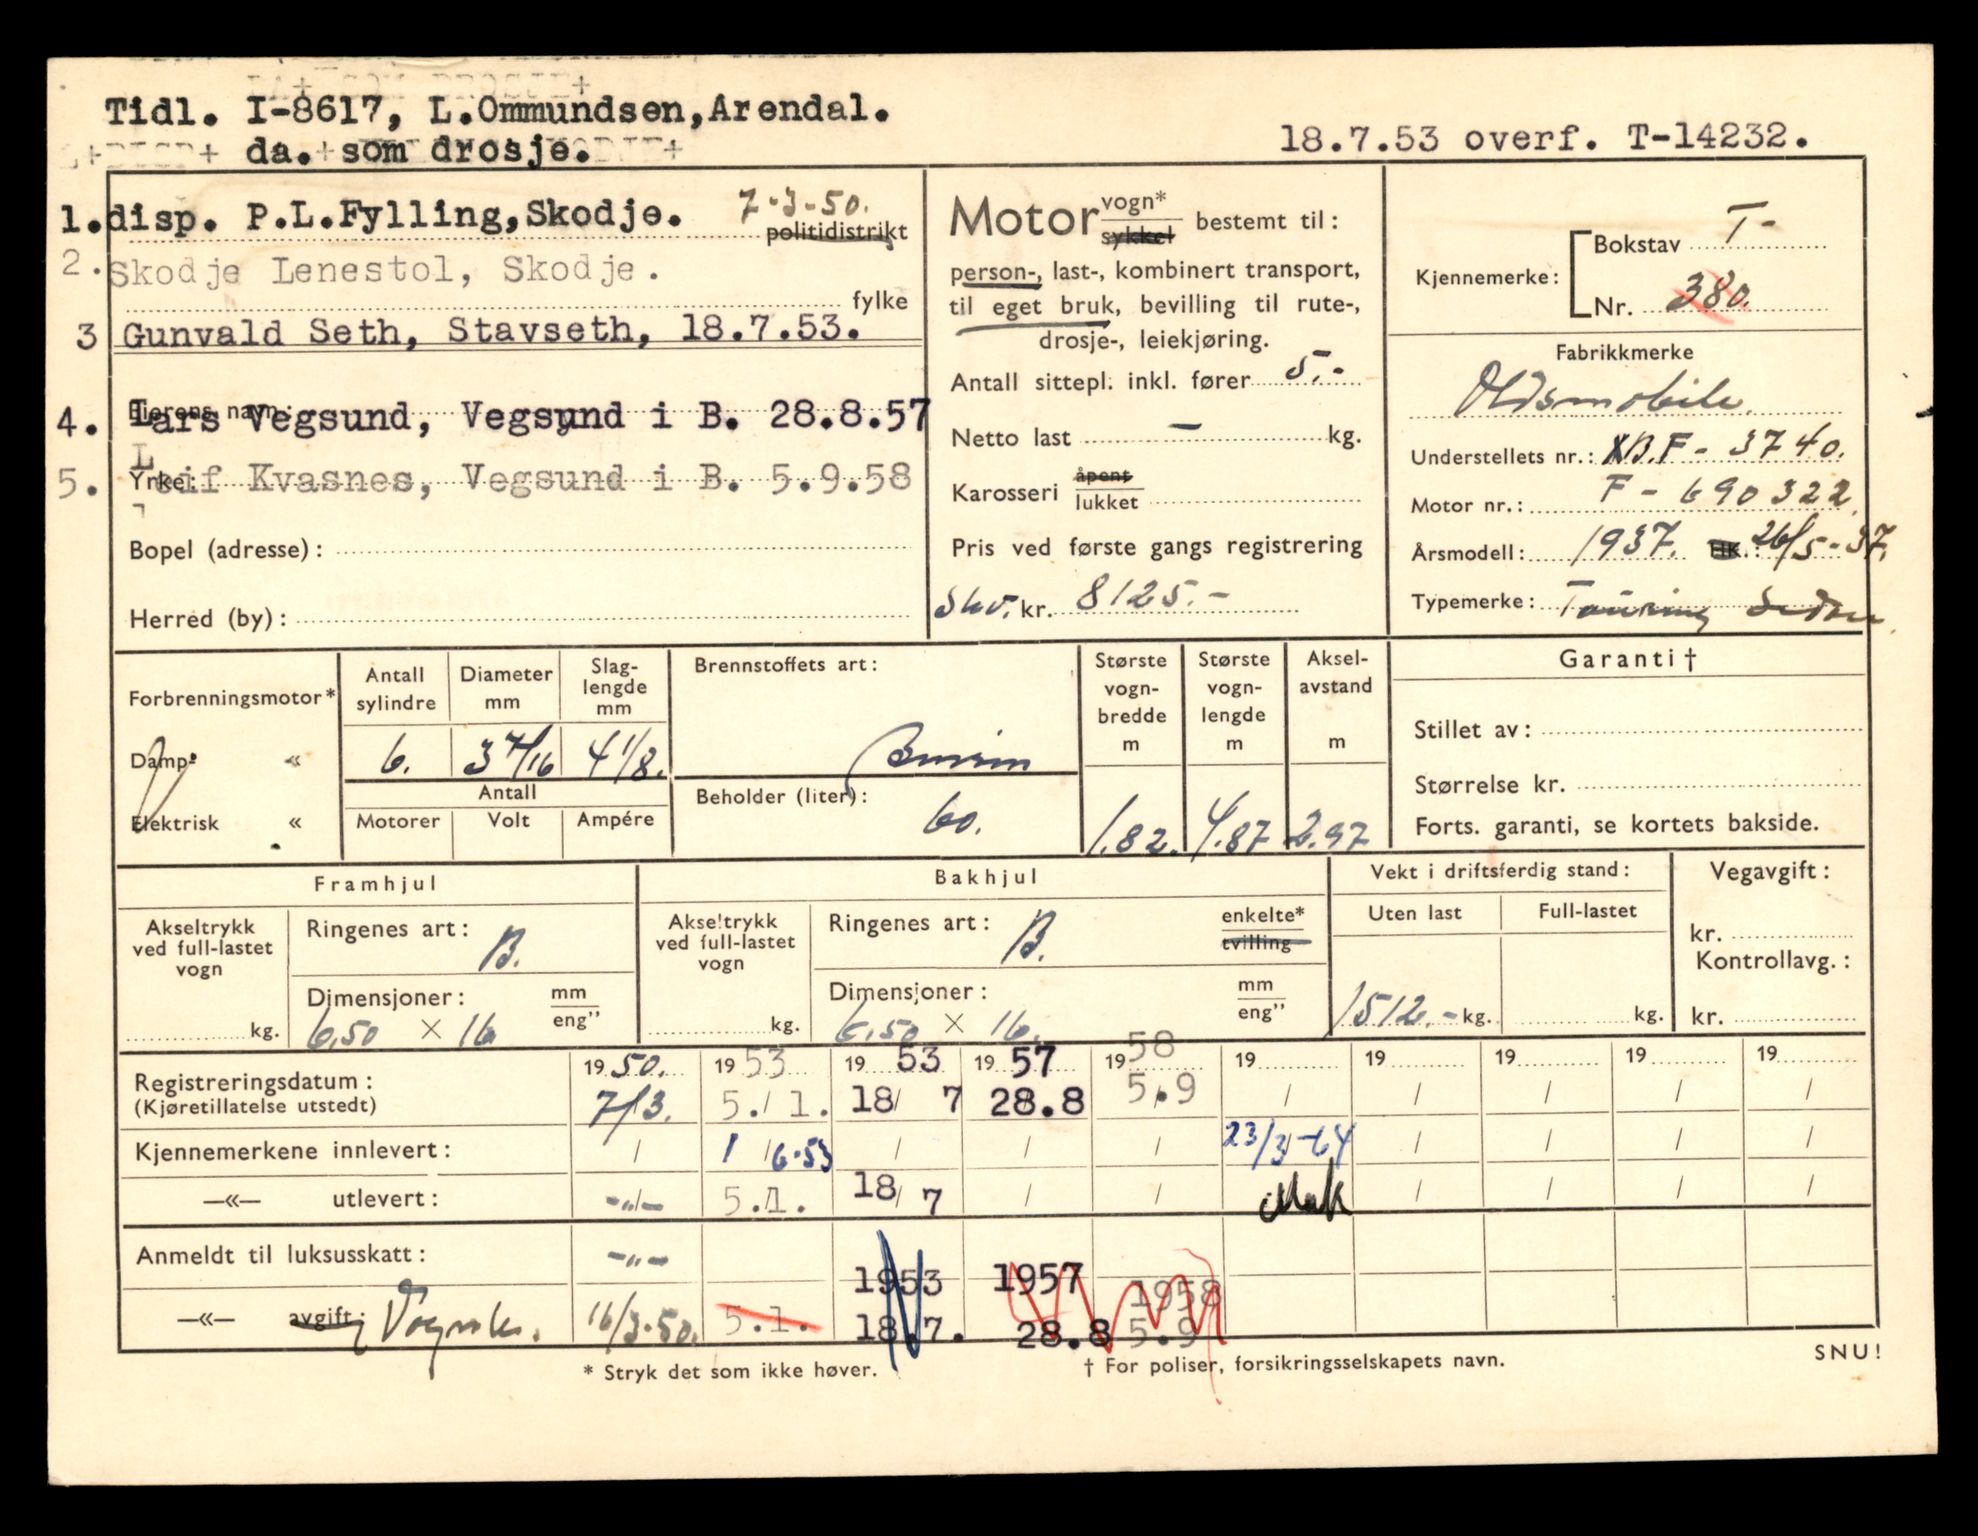 Tidl. I-8617, L.Ommundsen,Arendal.
da. som drosje.
18.7.53 overf. T-14232.
1.disp. P.L.Fylling,Skodje. 7-3-50.
politidistrikt
2. Skodje Lenestol, Skodje.
fylke
3 Gunvald Seth, Stavseth, 18.7.53.
Eierens navn:
4. Lars Vegsund, Vegsund i B. 28.8.57
Yrke:
5. Leif Kvasnes, Vegsund i B. 5.9.58
Bopel (adresse):
Herred (by):
Motor vogn* sykkel bestemt til:
person-, last-, kombinert transport,
til eget bruk, bevilling til rute-,
drosje-, leiekjøring.
Antall sittepl. inkl. fører 5.-
Netto last — kg.
Karosseri åpent lukket
Pris ved første gangs registrering
Skv. kr. 8125.-
Kjennemerke: Bokstav T-
Nr. 380.
Fabrikkmerke
Oldsmobile
Understellets nr.: XB.F-3740.
Motor nr.: F-690322.
Årsmodell: 1937. HK.: 26/5-37.
Typemerke: Touring Sedan
Forbrenningsmotor*
Damp- «
Elektrisk «
Antall sylindre
6.
Diameter mm
3 7/16
Slag-lengde mm
4 1/8.
Antall
Motorer Volt Ampére
Brennstoffets art:
Bensin
Beholder (liter):
60.
Største vogn-bredde m
1.82.
Største vogn-lengde m
4.87
Aksel-avstand m
2.97
Garanti†
Stillet av:
Størrelse kr.
Forts. garanti, se kortets bakside.
Framhjul
Akseltrykk ved full-lastet vogn
kg.
Ringenes art: B.
Dimensjoner: mm eng”
6.50 × 16
Bakhjul
Akseltrykk ved full-lastet vogn
kg.
Ringenes art: B. enkelte* tvilling
Dimensjoner: mm eng”
6.50 × 16.
Vekt i driftsferdig stand:
Uten last Full-lastet
1512.- kg. kg.
Vegavgift:
kr.
Kontrollavg.:
kr.
1950. 1953 1953 1957 1958 19 19 19 19 19
Registreringsdatum:
(Kjøretillatelse utstedt)
7/3. 5./1. 18/7 28.8 5.9 / / / / /
Kjennemerkene innlevert: / 1/6-53 / / / 23/3-64 / / / /
—«— utlevert: -"- 5.1. 18/7 / / / / / /
Anmeldt til luksusskatt: -"- 1953 1957 1958
—«— avgift: 16/3-50. 5.1. 18.7. 28.8 5.9
* Stryk det som ikke høver.
† For poliser, forsikringsselskapets navn.
SNU!